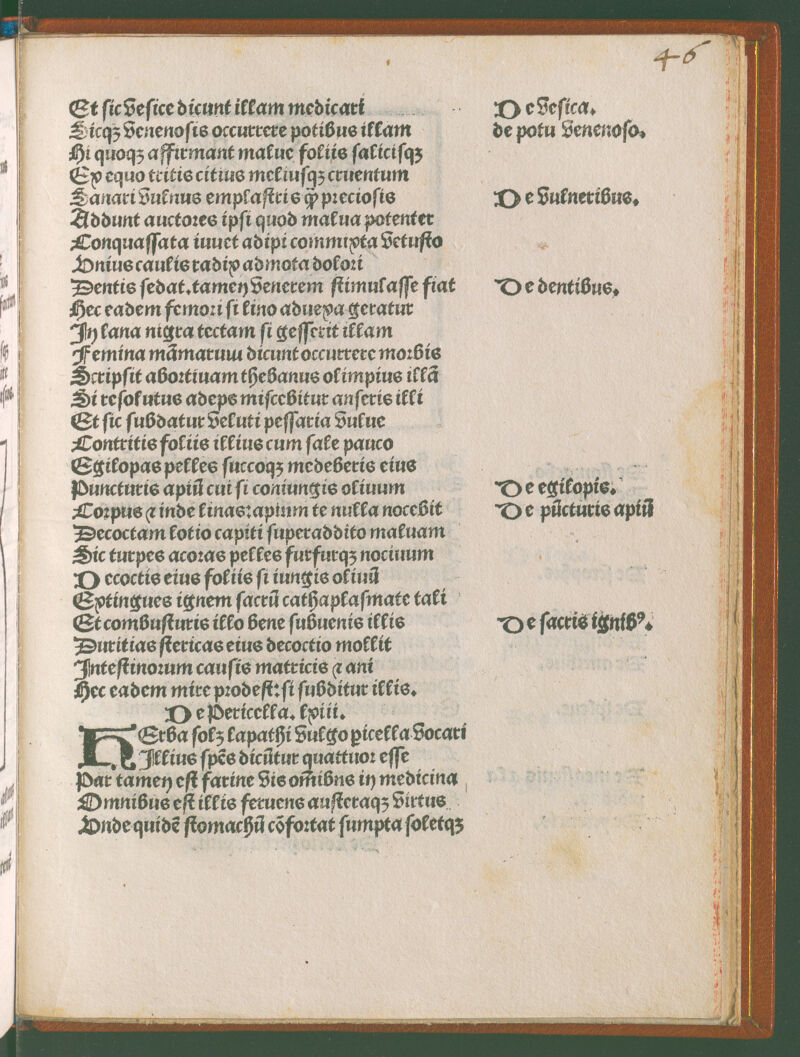 46
Et sic vesice dicunt illam medicari
De vesica.
Sicqꝫ venenosis occurrere potibus illam
de potu venenoso.
Hi quoqꝫ affirmant malue foliis salicisqꝫ
Ex equo tritis citius meliusqꝫ cruentum
Sanari vulnus emplastris ꝙ̃ preciosis
De vulneribus.
Addunt auctores ipsi quod malua potenter
Conquassata iuuet adipi commixta vetusto
Vnius caulis radix admota dolori
Dentis sedat. tamen venerem stimulasse fiat
De dentibus.
Hec eadem femori si lino aduexa geratur
In lana nigra tectam si gesserit illam
Femina mãmarum dicunt occurrere morbis
Scripsit abortiuam thebanus olimpius illã
Si resolutus adeps miscebitur anseris illi
Et sic subdatur veluti pessaria vulue
Contritis foliis illius cum sale pauco
Egilopas pelles succoqꝫ medeberis eius
Puncturis apiũ cui si coniungis oliuum
De egilopis.
Corpus ⁊ inde linas: apium te nulla nocebit
De pũcturis apiũ
Decoctam lotio capiti superaddito maluam
Sic turpes acoras pelles furfurqꝫ nociuum
Decoctis eius foliis si iungis oliuũ
Extingues ignem sacrũ cathaplasmate tali
Et combusturis illo bene subuenis illis
De sacris ignibꝰ.
Duritias stericas eius decoctio mollit
Intestinorum causis matricis ⁊ ani
Hec eadem mire prodest: si subditur illis.
De Pericella. lxiii.
HErba solꝫ lapathi vulgo ꝑicella vocari
Illius spẽs dicũtur quattuor esse
Par tamen est farine vis om̃ibus in medicina
Omnibus est illis feruens austeraqꝫ virtus
Vnde quidẽ stomachũ cõfortat sumpta soletqꝫ